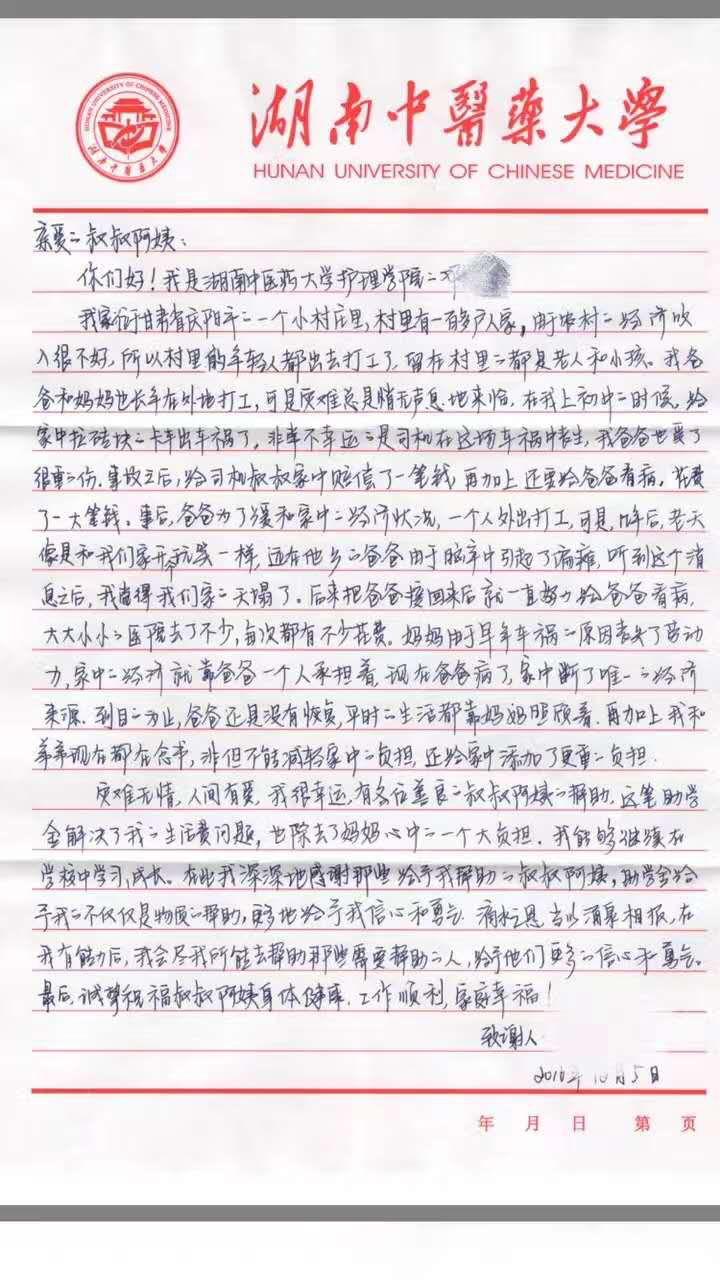 湖南中醫藥大學
HUNAN UNIVERSITY OF CHINESE MEDICINE
HUNAN UNIVERSITY OF CHINESE MEDICINE
湖南中醫藥大學
亲爱的叔叔阿姨：
你们好！我是湖南中医药大学护理学院的邓
我家位于甘肃省庆阳市的一个小村庄里，村里有一百多户人家，由于农村的经济收
入很不好，所以村里的年轻人都出去打工了，留在村里的都是老人和小孩。我爸
爸和妈妈也长年在外地打工，可是灾难总是悄无声息地来临，在我上初中的时候，给
家中拉砖块的卡车出车祸了，非常不幸运的是司机在这场车祸中丧生，我爸爸也受了
很重的伤。事故之后，给司机叔叔家中赔偿了一笔钱，再加上还要给爸爸看病，花费
了一大笔钱。事后，爸爸为了缓和家中的经济状况，一个人外出打工，可是，几年后，老天
像是和我们家开玩笑一样，远在他乡的爸爸由于脑卒中引起了偏瘫，听到这个消
息之后，我觉得我们家的天塌了。后来把爸爸接回来后就一直努力给爸爸看病，
大大小小的医院去了不少，每次都有不少花费。妈妈由于早年车祸的原因丧失了劳动
力，家中的经济就靠爸爸一个人承担着，现在爸爸病了，家中断了唯一的经济
来源，到目的为止，爸爸还是没有恢复，平时的生活都靠妈妈照顾着，再加上我和
弟弟现在都在念书，非但不能减轻家中的负担，还给家中添加了更重的负担．
灾难无情，人间有爱，我很幸运，有各位善良的叔叔阿姨的帮助，这笔助学
金解决了我的生活费问题，也除去了妈妈心中的一个大负担．我能够继续在
学校中学习，成长。在此我深深地感谢那些给予我帮助的叔叔阿姨，助学金给
予我的不仅仅是物质的帮助，更多地给予我信心和勇气．滴水之恩，当以涌泉相报，在
我有能力后，我会尽我所能去帮助那些需要帮助的人，给予他们更多的信心和勇气。
最后，诚挚祝福叔叔阿姨身体健康，工作顺利，家庭幸福！
致谢人
2016年10月5日
年 月 日 第 页